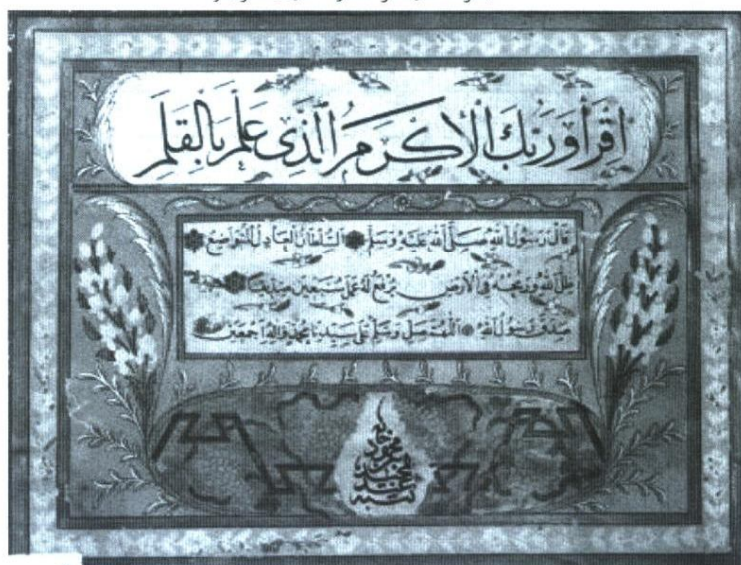 اقرأ وربك الاكرم الذى علم بالقلم
قال رسول الله صلى الله عليه وسلم السلطان العادل المتواضع
ظل الله ورمحه في الارض يرفع له عمل سبعين صديقا
صدق رسول الله اللهم صل وسلم على سيدنا محمد وآله اجمعين
محمود خان
بن عبد الحميد
كتبه